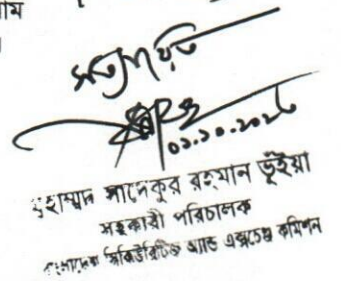 সত্যায়িত
০১.১০.২০২৪
মুহাম্মাদ সাদেকুর রহমান ভূঁইয়া
সহকারী পরিচালক
বাংলাদেশ সিকিউরিটিজ অ্যান্ড এক্সচেঞ্জ কমিশন